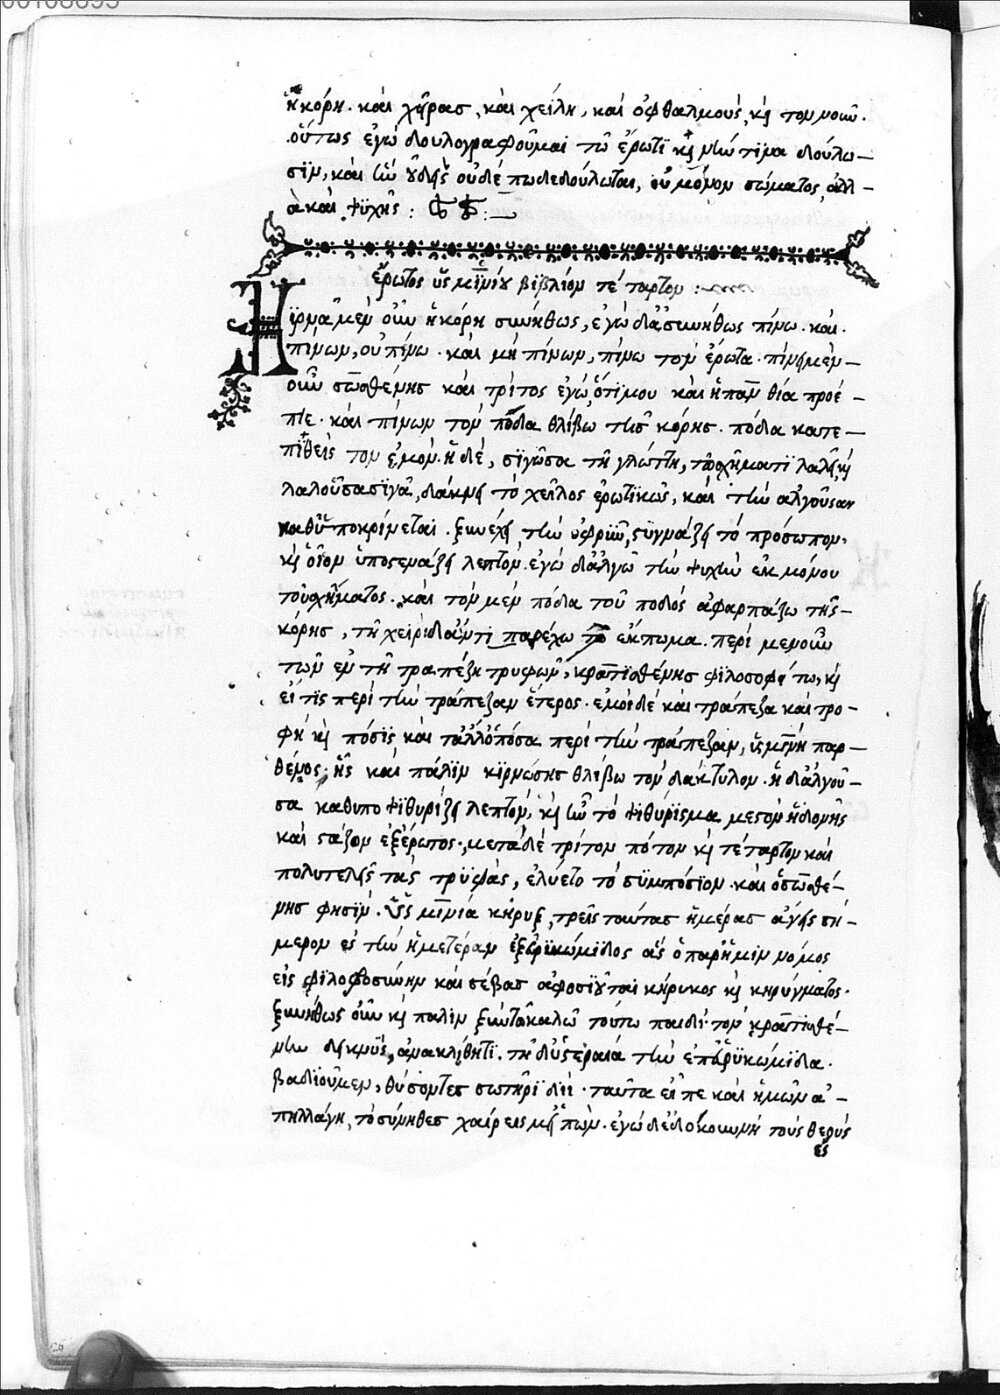 ἡ κόρη. καὶ χεῖρας, καὶ χείλη, καὶ ὀφθαλμούς, κỳ τὸν νοῦν.
οὕτως ἐγὼ δουλογραφοῦμαι τῷ ἔρωτι κỳ τίμα δούλω-
σιν, καὶ οὐδέπω δεδούλωται, οὐ μόνον σώματος, ἀλλ-
ὰ καὶ ψυχῆς :
ἔρωτος ὑσμινίου βιβλίον τέταρτον :
Κιρνᾷ μὲν οὖν ἡ κόρη συνήθως, ἐγὼ δ᾽ ἀσυνήθως πίνω. καὶ
πίνων, οὐ πίνω. καὶ μὴ πίνων, πίνω τὸν ἔρωτα. πίνει μὲν
οὖν σωσθένης καὶ τρίτος ἐγώ, ὅτι μου καὶ ἡ πανθία προέ-
πιε. καὶ πίνων τὸν πόδα θλίβω τῆς κόρης. πόδα κατε-
πιθεὶς τὸν ἐμόν. ἡ δέ, σιγῶσα τῇ γλώττῃ, τῷ σχήματι λαλεῖ, κỳ
λαλοῦσα σιγᾷ, δάκνει τὸ χεῖλος ἐρωτικῶς, καὶ τὴν ἀλγοῦσαν
καθυποκρίνεται. ξυνέχει τὴν ὀφρῦν, συγνάζει τὸ πρόσωπον,
κỳ οἷον ὑποστενάζει λεπτόν. ἐγὼ δ᾽ ἀλγῶ τὴν ψυχὴν ἐκ μόνου
τοῦ σχήματος. καὶ τὸν μὲν πόδα τοῦ ποδὸς ἀφαρπάζω τῆς
κόρης, τῇ χειρὶ δ᾽ αὐτῇ παρέχω τὸ ἔκπωμα. περὶ μὲν οὖν
τῶν ἐν τῇ τραπέζῃ τρυφῶν, κρατισθένης φιλοσοφείτω, κỳ
εἴ τις περὶ τὴν τράπεζαν ἕτερος. ἐμοὶ δὲ καὶ τράπεζα καὶ τρο-
φὴ κỳ πόσις καὶ τἆλλ᾽ ὁπόσα περὶ τὴν τράπεζαν, ὑσμίνη παρ-
θένος, ἧς καὶ πάλιν κιρνώσης θλίβω τὸν δάκτυλον. ἡ δ᾽ ἀλγοῦ-
σα καθυποψιθυρίζει λεπτόν, κỳ ἦν τὸ ψιθύρισμα μεστὸν ἡδονῆς
καὶ στάζον ἐξ ἔρωτος. μετὰ δὲ τρίτον πότον κỳ τέταρτον καὶ
πολυτελεῖς τὰς τρυφάς, ἐλύετο τὸ συμπόσιον. καὶ ὁ σωσθέ-
νης φησίν. ὑσμινία κήρυξ, τρεῖς ταύτας ἡμέρας ἄγεις σή-
μερον ἐς τὴν ἡμετέραν ἐξ εὐρυκώμιδος ἃς ὁ παρ᾽ ἡμῖν νόμος
εἰς φιλοφροσύνην καὶ σέβας ἀφοσιοῦται κήρυκος κỳ κηρύγματος.
ξυνήθως οὖν κỳ πάλιν ξὺν τῷ καλῷ τούτῳ παιδὶ τὸν κρατισθέ-
νην δείκνύς, ἀνακλίθητι. τῇ δ᾽ ὑστεραίᾳ τὴν ἐπ᾽ εὐρυκώμιδα
βαδιοῦμεν, θύσοντες σωτῆρι διί. ταῦτα εἶπε καὶ ἡμῶν ἀ-
πηλλάγη, τὸ σύνηθες χαίρειν εἰπών. ἐγὼ δὲ